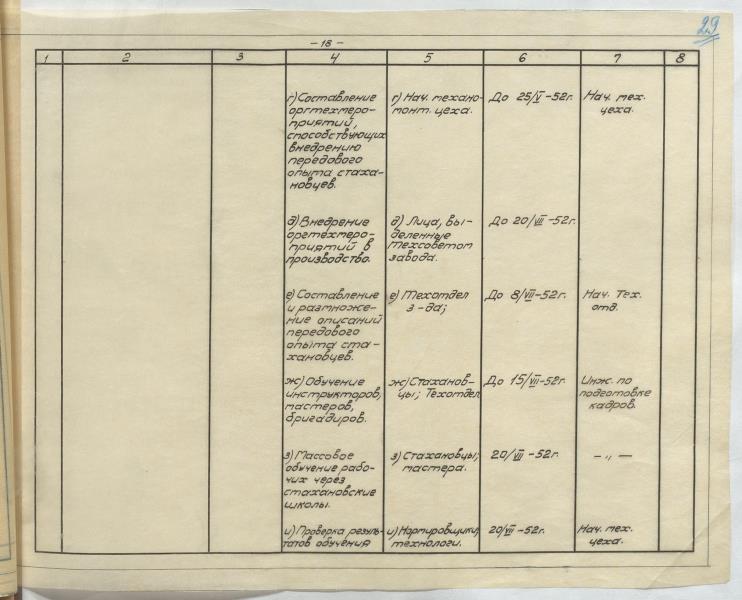 29
— 18 —
1 2 3 4 5 6 7 8
г) Составление
оргтехмеро-
приятий,
способствующих
внедрению
передового
опыта стаха-
новцев.
г) Нач. механо-
монт. цеха.
До 25/V -52г.
Нач. мех.
цеха.
д) Внедрение
оргтехмеро-
приятий в
производство.
д) Лица, вы-
деленные
Техсоветом
завода.
До 20/VII -52г.
е) Составление
и размноже-
ние описаний
передового
опыта ста-
хановцев.
е) Техотдел
з-да;
До 8/VII-52г.
Нач. Тех.
отд.
ж) Обучение
инструкторов,
мастеров,
бригадиров.
ж) Стаханов-
цы; Техотдел
До 15/VII-52г.
Инж. по
подготовке
кадров.
з) Массовое
обучение рабо-
чих через
стахановские
школы.
з) Стахановцы;
мастера.
20/VII -52г.
— „ —
и) Проверка резуль-
татов обучения
и) Нормировщики,
технологи.
20/VII -52г.
Нач. мех.
цеха.